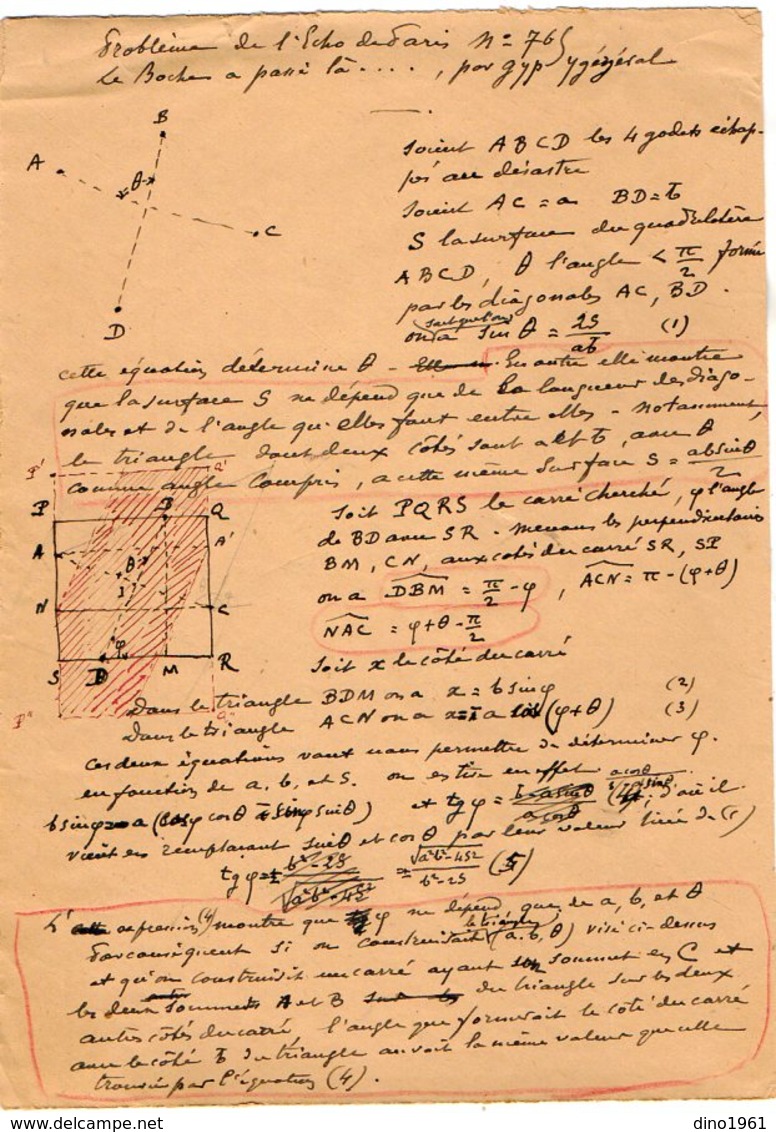 Problème de l'Echo de Paris No 76
Le Boche a passé là...., par gyp
B
A
θ
C
D
Soient ABCD les 4 godets échap-
pés au désastre
Soient AC = a BD = b
S la surface du quadrilatère
ABCD, θ l'angle < π/2 formé
par les diagonales AC, BD.
on a sin θ = 2S/ab (1)
cette équation détermine θ - En outre elle montre
que la surface S ne dépend que de la longueur des diago-
nales et de l'angle qu'elles font entre elles - notamment,
le triangle dont deux côtés sont a et b, avec θ
comme angle compris, a cette même surface S = ab sin θ/2
P' Q'
P B Q
A A'
θ
I
N C
φ
S D M R
P" Q"
Soit PQRS le carré cherché, φ l'angle
de BD avec SR - menons les perpendiculaires
BM, CN, aux côtés du carré SR, SP
on a DBM = π/2 - φ, ACN = π - (φ+θ)
NAC = φ+θ-π/2
Soit x le côté du carré
Dans le triangle BDM on a x = b sin φ (2)
Dans le triangle ACN on a x = ∓ a cos (φ+θ) (3)
Ces deux équations vont nous permettre de déterminer φ.
en fonction de a, b, et S. on en tire en effet
b sin φ = a (cos φ cos θ - sin φ sin θ) et tg φ = a cos θ , d'où il
vient en remplaçant sin θ et cos θ par leur valeur tirée de (1)
tg φ = ± √a²b²-4S² / b²-2S (5)
L'expression (4) montre que φ ne dépend que de a, b, et θ
Par conséquent si on construisait le triangle (a, b, θ) visé ci-dessus
et qu'on construisit un carré ayant son sommet en C et
les deux sommets A et B du triangle sur les deux
autres côtés du carré l'angle que formerait le côté du carré
avec le côté b du triangle aurait la même valeur que celle
trouvée par l'équation (4).
dino1961